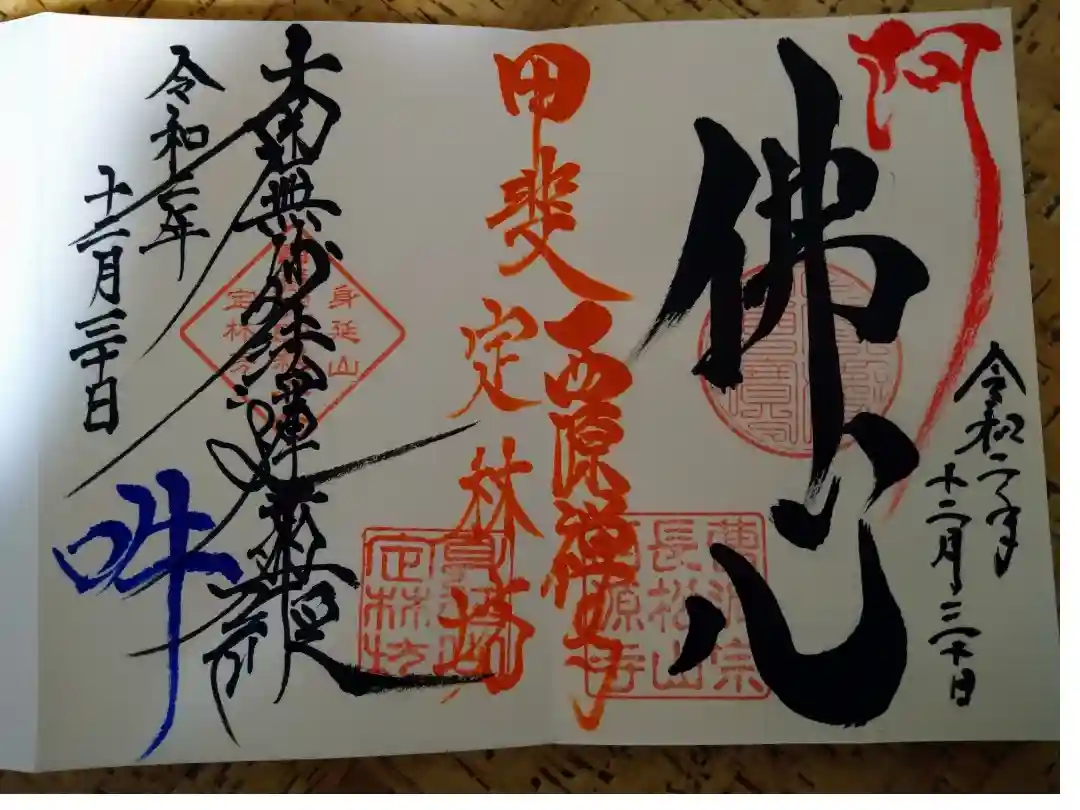 阿
令和二年
十二月三十日
佛心
曹洞宗
長松山
西源寺
甲斐
西源禅寺
定林坊
定林坊
身延山
定林坊
南無妙法蓮華經
令和二年
十二月三十日
吽